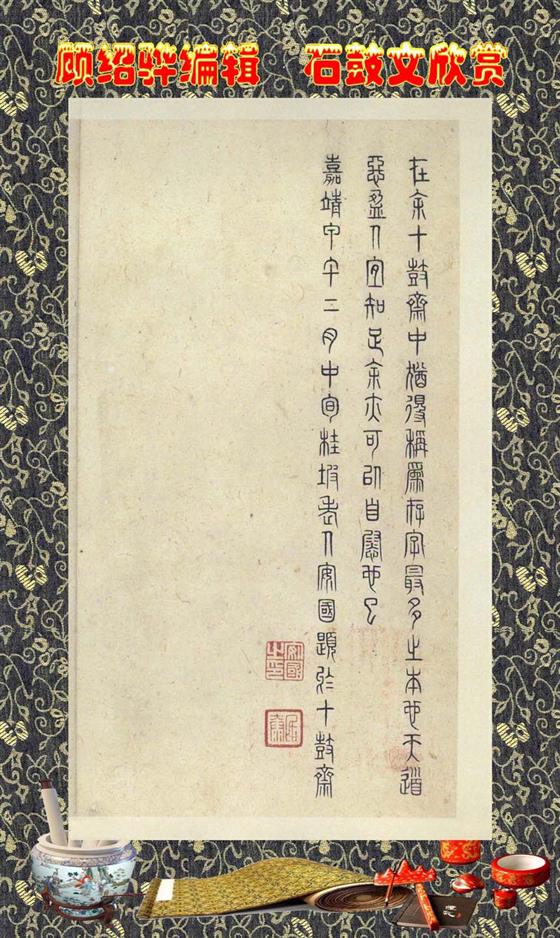 顾绍骅编辑 石鼓文欣赏
在余十鼓齋中猶得稱爲存字最多之本也天道
惡盈人宜知足余亦可以自慰也已
嘉靖甲午二月中旬桂坡老人安國題於十鼓齋
安國之印